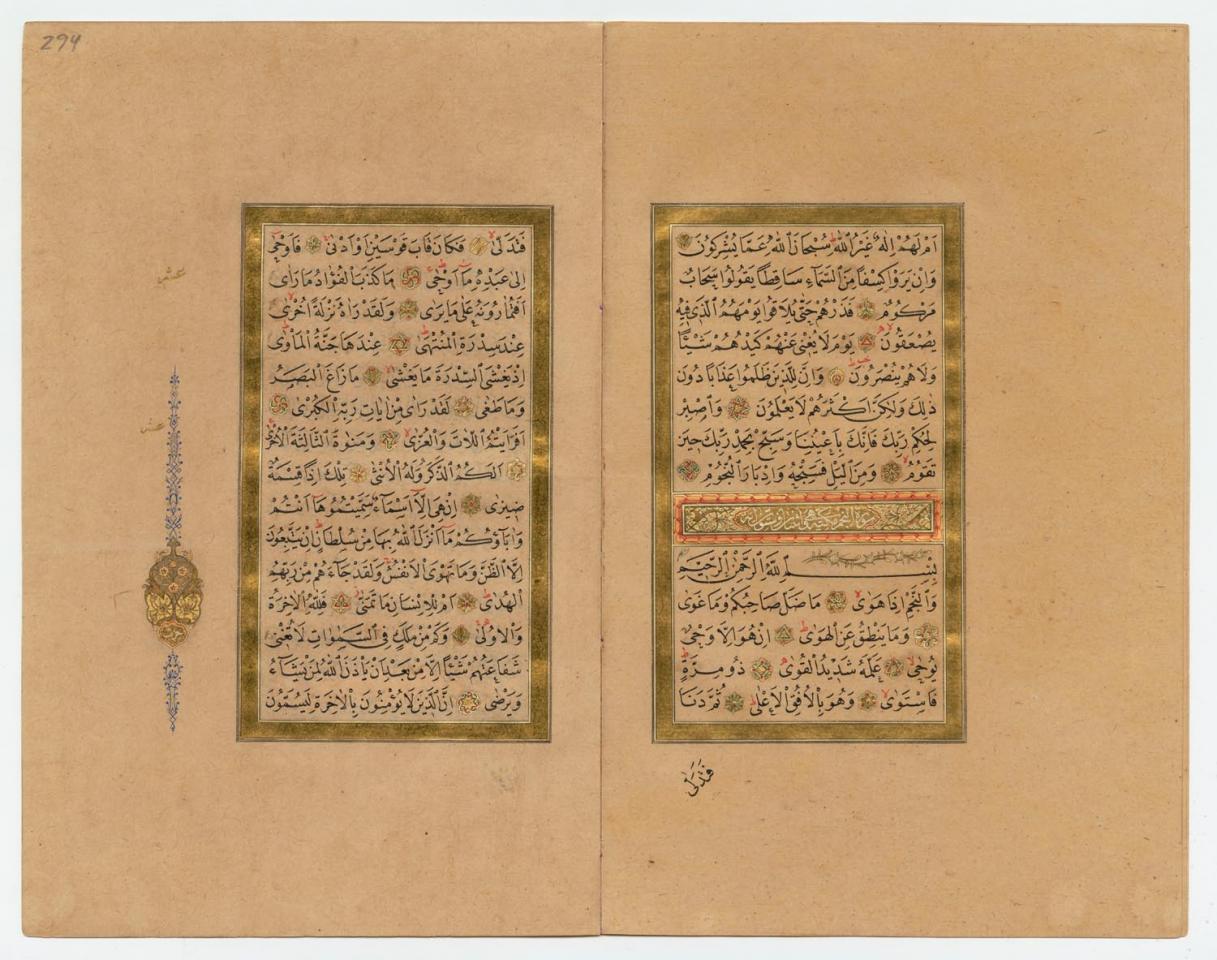 اَمْ لَهُمْ اِلٰهٌ غَيْرُ اللّٰهِ سُبْحَانَ اللّٰهِ عَمَّا يُشْرِكُونَ
وَاِنْ يَرَوْا كِسْفًا مِنَ السَّمَاءِ سَاقِطًا يَقُولُوا سَحَابٌ
مَرْكُومٌ فَذَرْهُمْ حَتّٰى يُلَاقُوا يَوْمَهُمُ الَّذِى فِيهِ
يُصْعَقُونَ يَوْمَ لَا يُغْنِى عَنْهُمْ كَيْدُهُمْ شَيْئًا
وَلَا هُمْ يُنْصَرُونَ وَاِنَّ لِلَّذِينَ ظَلَمُوا عَذَابًا دُونَ
ذٰلِكَ وَلٰكِنَّ اَكْثَرَهُمْ لَا يَعْلَمُونَ وَاصْبِرْ
لِحُكْمِ رَبِّكَ فَاِنَّكَ بِاَعْيُنِنَا وَسَبِّحْ بِحَمْدِ رَبِّكَ حِينَ
تَقُومُ وَمِنَ الَّيْلِ فَسَبِّحْهُ وَاِدْبَارَ النُّجُومِ
سورة النجم مكية وهى
بِسْمِ اللّٰهِ الرَّحْمٰنِ الرَّحِيمِ
وَالنَّجْمِ اِذَا هَوٰى مَا ضَلَّ صَاحِبُكُمْ وَمَا غَوٰى
وَمَا يَنْطِقُ عَنِ الْهَوٰى اِنْ هُوَ اِلَّا وَحْىٌ
يُوحٰى عَلَّمَهُ شَدِيدُ الْقُوٰى ذُو مِرَّةٍ
فَاسْتَوٰى وَهُوَ بِالْاُفُقِ الْاَعْلٰى ثُمَّ دَنَا
فَتَدَلّٰى
294
فَتَدَلّٰى فَكَانَ قَابَ قَوْسَيْنِ اَوْ اَدْنٰى فَاَوْحٰى
اِلٰى عَبْدِهِ مَا اَوْحٰى مَا كَذَبَ الْفُؤَادُ مَا رَاٰى
اَفَتُمَارُونَهُ عَلٰى مَا يَرٰى وَلَقَدْ رَاٰهُ نَزْلَةً اُخْرٰى
عِنْدَ سِدْرَةِ الْمُنْتَهٰى عِنْدَهَا جَنَّةُ الْمَاْوٰى
اِذْ يَغْشَى السِّدْرَةَ مَا يَغْشٰى مَا زَاغَ الْبَصَرُ
وَمَا طَغٰى لَقَدْ رَاٰى مِنْ اٰيَاتِ رَبِّهِ الْكُبْرٰى
اَفَرَاَيْتُمُ اللَّاتَ وَالْعُزّٰى وَمَنٰوةَ الثَّالِثَةَ الْاُخْرٰى
اَلَكُمُ الذَّكَرُ وَلَهُ الْاُنْثٰى تِلْكَ اِذًا قِسْمَةٌ
ضِيزٰى اِنْ هِىَ اِلَّا اَسْمَاءٌ سَمَّيْتُمُوهَا اَنْتُمْ
وَاٰبَاؤُكُمْ مَا اَنْزَلَ اللّٰهُ بِهَا مِنْ سُلْطَانٍ اِنْ يَتَّبِعُونَ
اِلَّا الظَّنَّ وَمَا تَهْوَى الْاَنْفُسُ وَلَقَدْ جَاءَهُمْ مِنْ رَبِّهِمُ
الْهُدٰى اَمْ لِلْاِنْسَانِ مَا تَمَنّٰى فَلِلّٰهِ الْاٰخِرَةُ
وَالْاُولٰى وَكَمْ مِنْ مَلَكٍ فِى السَّمٰوَاتِ لَا تُغْنِى
شَفَاعَتُهُمْ شَيْئًا اِلَّا مِنْ بَعْدِ اَنْ يَاْذَنَ اللّٰهُ لِمَنْ يَشَاءُ
وَيَرْضٰى اِنَّ الَّذِينَ لَا يُؤْمِنُونَ بِالْاٰخِرَةِ لَيُسَمُّونَ